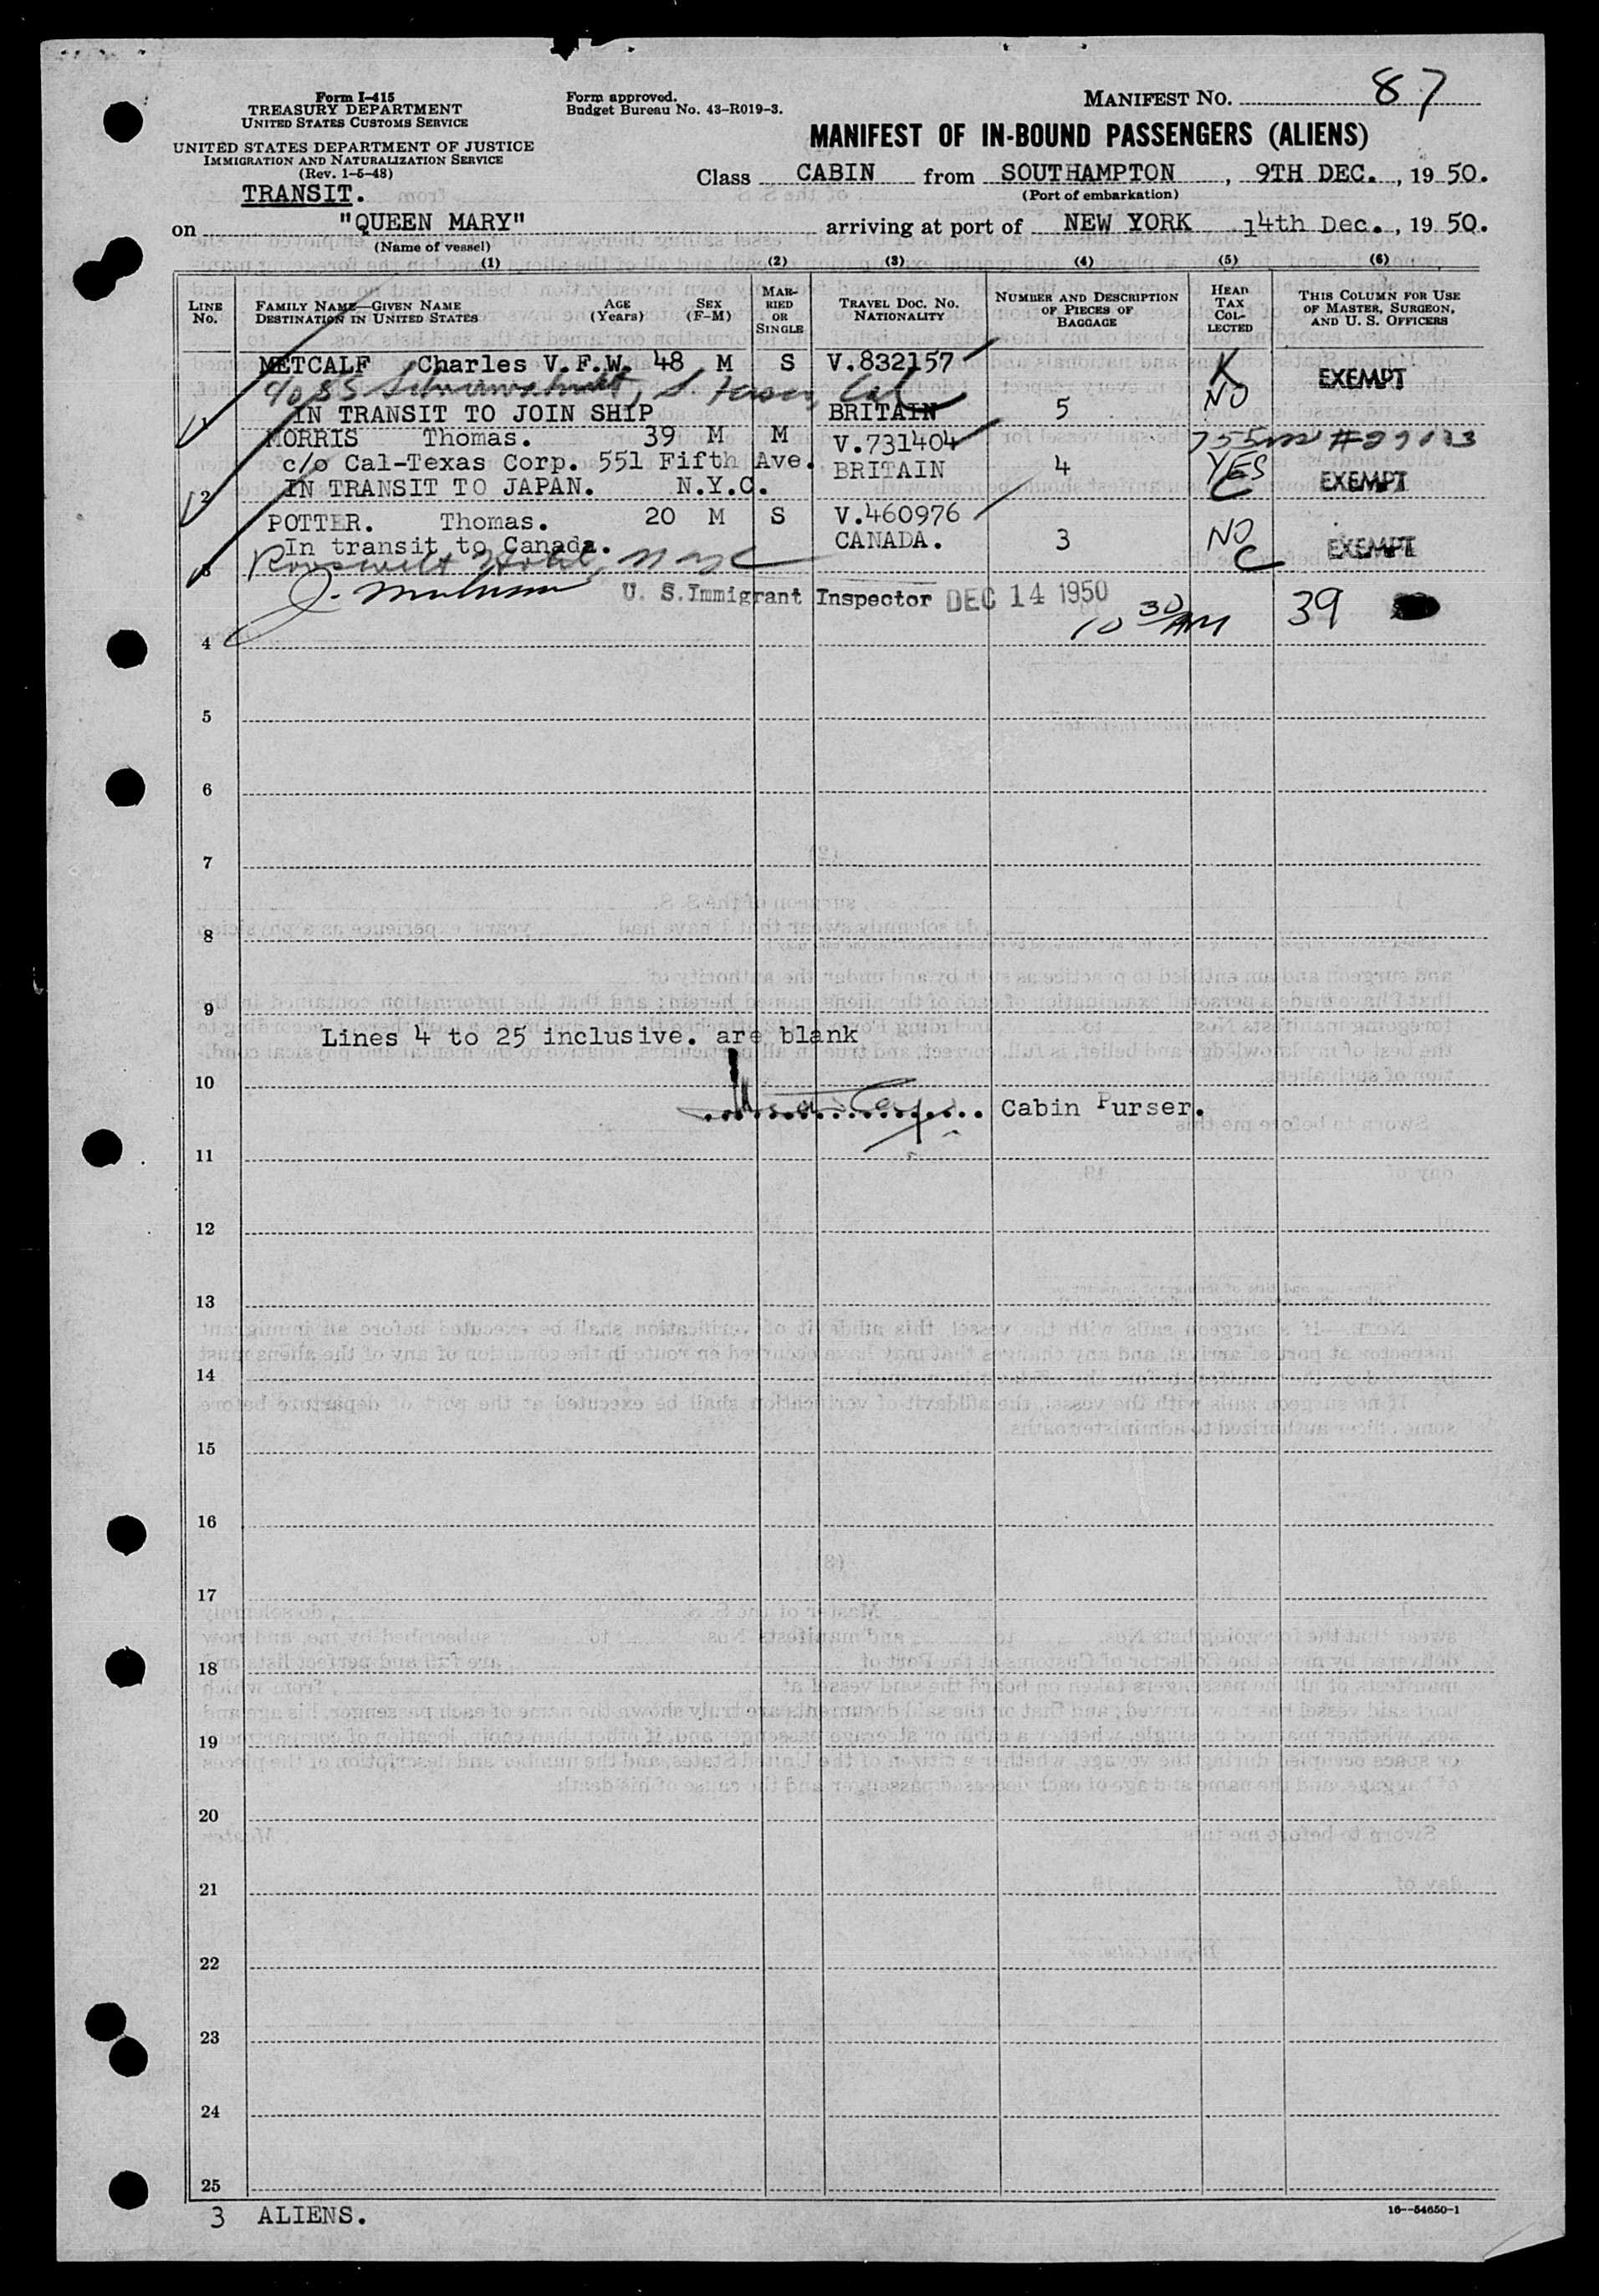 Form I-415
TREASURY DEPARTMENT
UNITED STATES CUSTOMS SERVICE
UNITED STATES DEPARTMENT OF JUSTICE
IMMIGRATION AND NATURALIZATION SERVICE
(Rev. 1-5-48)
TRANSIT.
Form approved.
Budget Bureau No. 43-R019-3.
MANIFEST NO. 87
MANIFEST OF IN-BOUND PASSENGERS (ALIENS)
Class CABIN from SOUTHAMPTON, 9TH DEC., 1950.
(Port of embarkation)
on "QUEEN MARY" arriving at port of NEW YORK 14th Dec., 1950.
(Name of vessel)
(1) (2) (3) (4) (5) (6)
LINE No.
FAMILY NAME—GIVEN NAME
DESTINATION IN UNITED STATES
AGE (Years)
SEX (F-M)
MARRIED OR SINGLE
TRAVEL DOC. NO.
NATIONALITY
NUMBER AND DESCRIPTION OF PIECES OF BAGGAGE
HEAD TAX COLLECTED
THIS COLUMN FOR USE OF MASTER, SURGEON, AND U. S. OFFICERS
METCALF Charles V.F.W. 48 M S V.832157 K EXEMPT
c/o SS Cal
1 IN TRANSIT TO JOIN SHIP BRITAIN 5 NO
MORRIS Thomas. 39 M M V.731404
c/o Cal-Texas Corp. 551 Fifth Ave. BRITAIN 4 YES EXEMPT
2 IN TRANSIT TO JAPAN. N.Y.C. C
POTTER. Thomas. 20 M S V.460976 NO
In transit to Canada. CANADA. 3 C EXEMPT
3 Roosevelt Hotel, NYC
U. S. Immigrant Inspector DEC 14 1950
10 30 AM 39
4
5
6
7
8
9
Lines 4 to 25 inclusive. are blank
10
Cabin Purser.
11
12
13
14
15
16
17
18
19
20
21
22
23
24
25
3 ALIENS.
16—54650-1